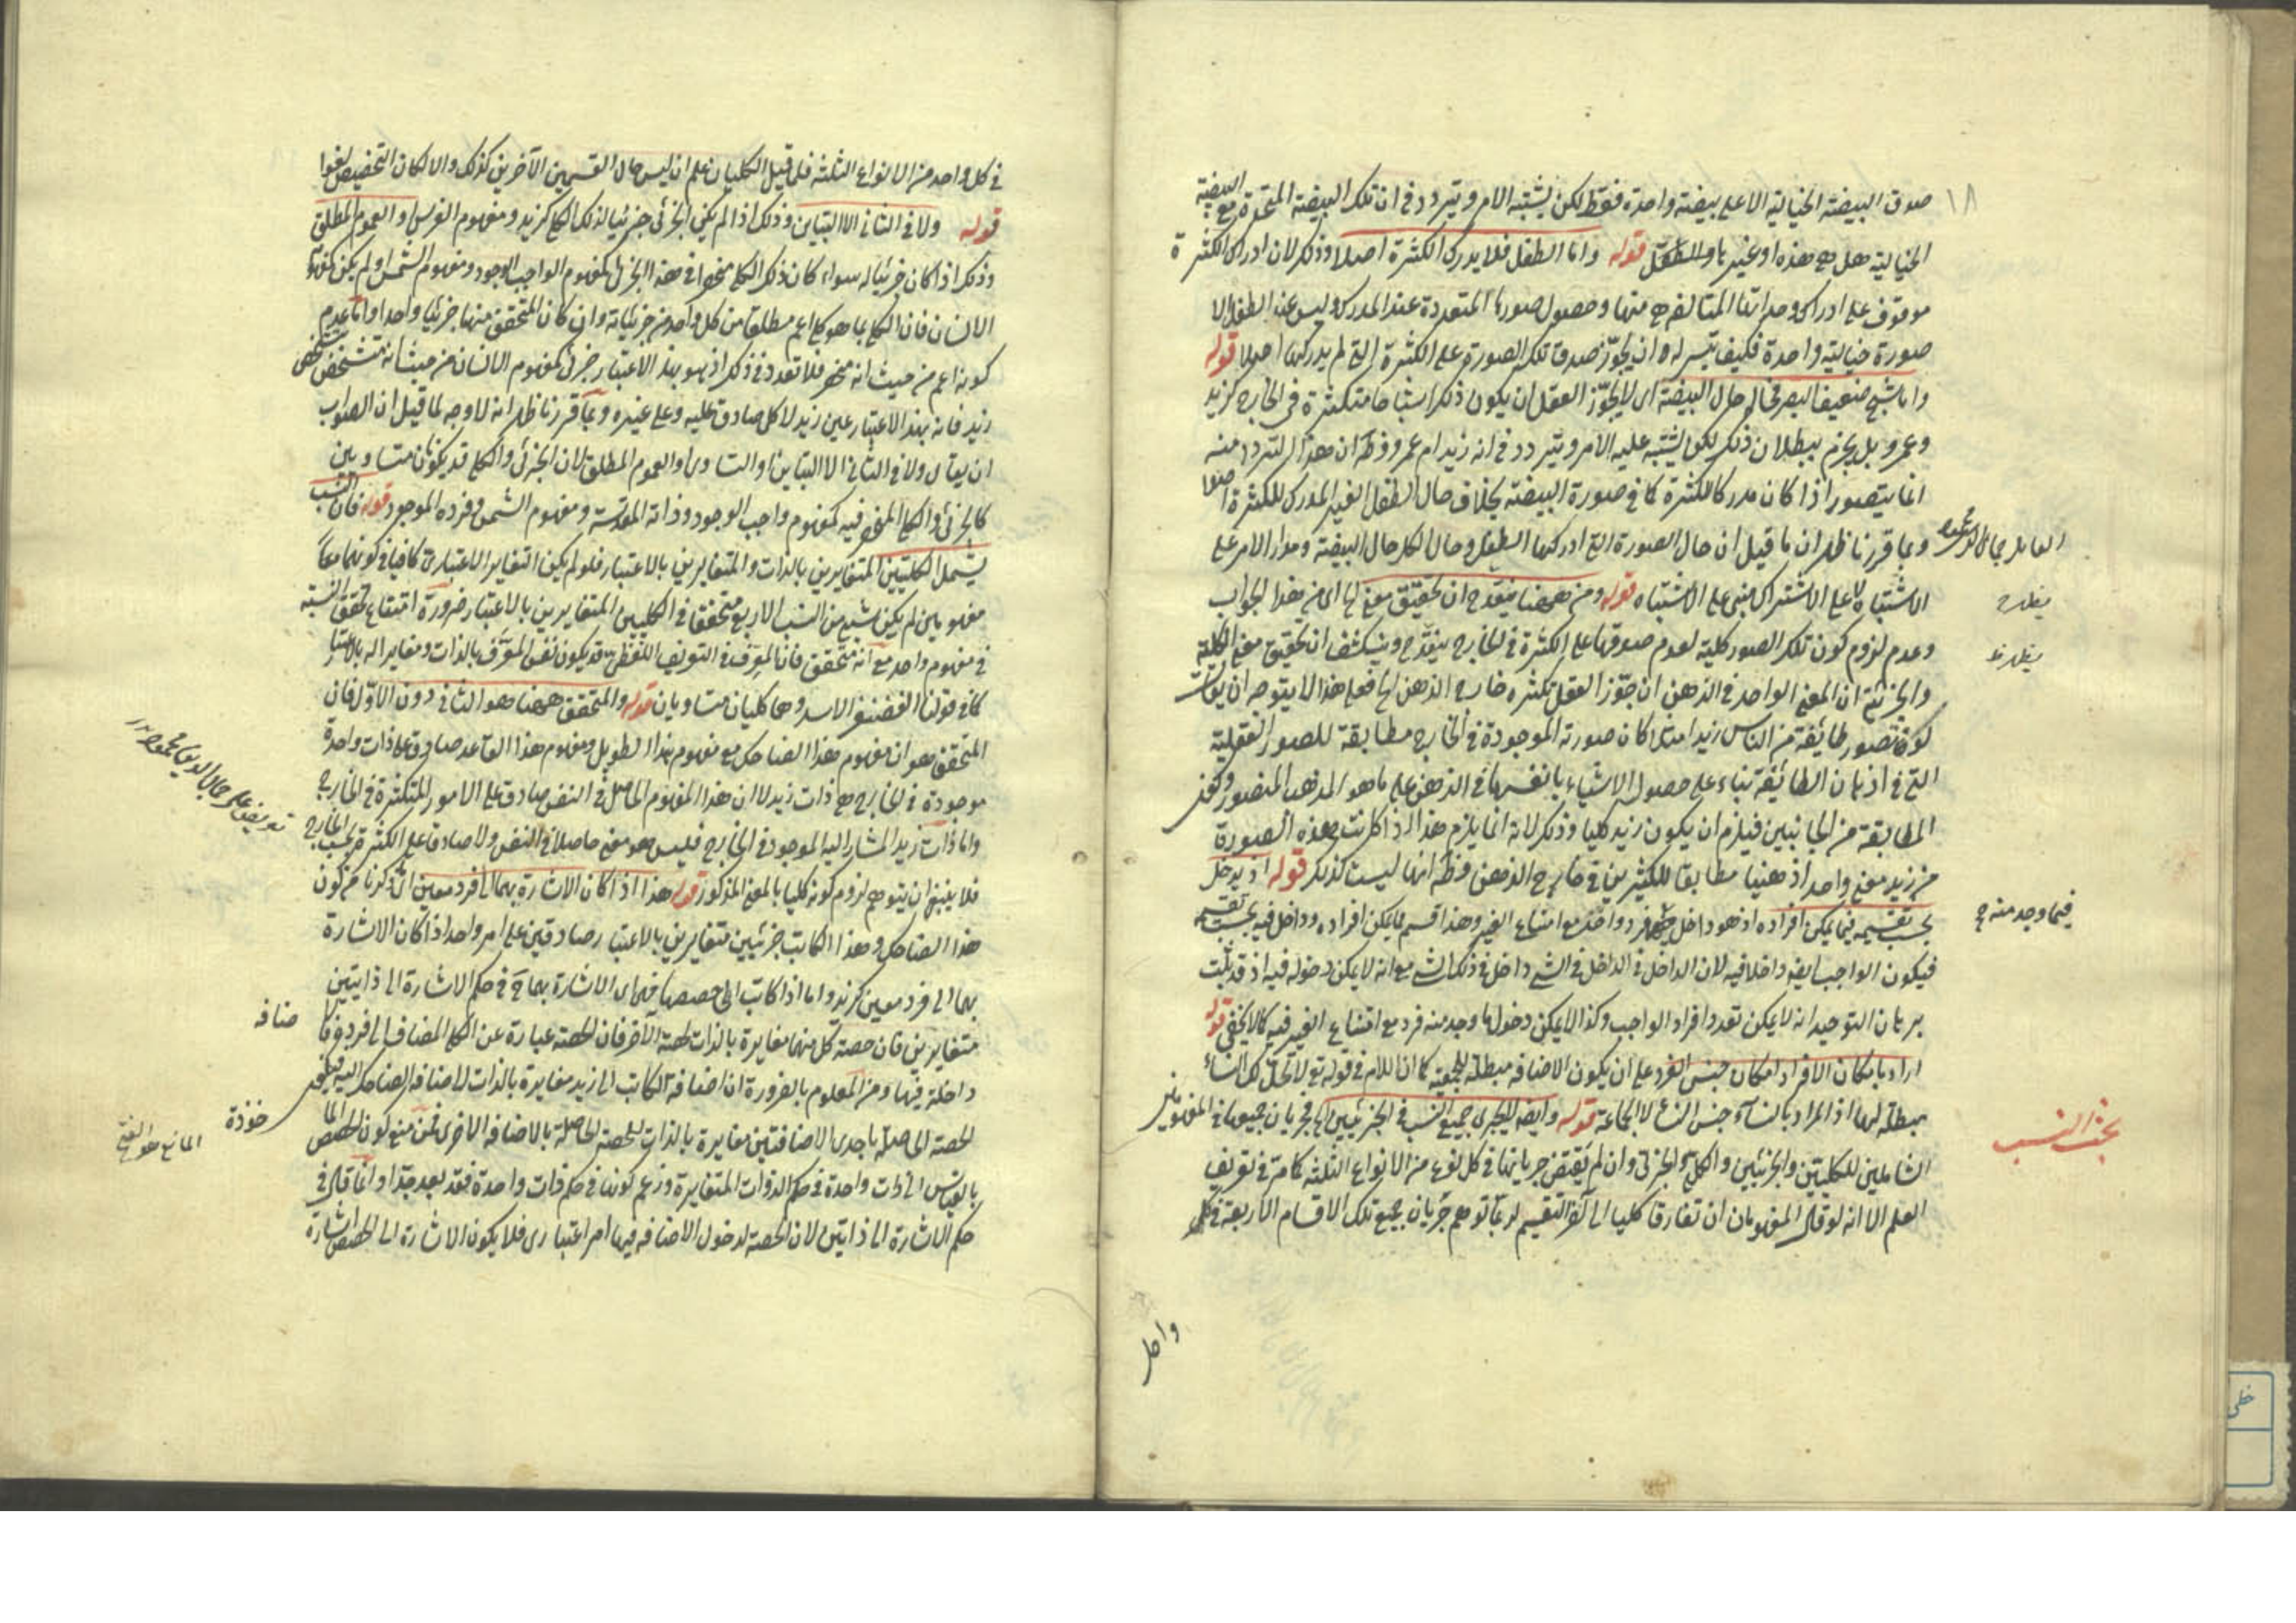 ١٨
صدق البيضة الخيالية الا على بيضة واحدة فقط لكن يشتبه الامر ويتردد في ان تلك البيضة المتحدة مع البيضة
الخيالية هل هى هذه او غيرها قوله واما الطفل فلا يدرك الكثرة اصلا وذلك لان ادراك الكثرة
موقوف على ادراك وحداتها المتالفة هى منها وحصول صورها المتعددة عند المدرك وليس عند الطفل الا
صورة خيالية واحدة فكيف يتيسر له ان يجوّز صدق تلك الصورة على الكثرة التى لم يدركها اصلا قوله
واما شبح ضعيف البصر فحاله حال البيضة اى لا يجوّز العقل ان يكون ذلك اشباحا متكثرة فى الخارج كزيد
وعمرو بل يجزم ببطلان ذلك لكن يشتبه عليه الامر ويتردد فى انه زيد ام عمرو وظ ان هذا التردد منه
انما يتصور اذا كان مدركا للكثرة كما فى صورة البيضة بخلاف حال الطفل الغير المدرك للكثرة اصلا
وبما قررنا ظهر ان ما قيل ان حال الصورة التى ادركها الطفل وحال الكل حال البيضة ومدار الامر على
الاشتباه لا على الاشتراك مبنى على الاشتباه قوله ومن ههنا ينقدح ان تحقيق معنى اى من هذا الجواب
وعدم لزوم كون تلك الصور كلية لعدم صدقها على الكثرة فى الخارج ينقدح وينكشف ان تحقيق معنى الكلية
والجزئية ان المعنى الواحد فى الذهن ان جوّز العقل تكثره خارج الذهن فعلى هذا لا يتوجه ان يقال
تصور طائفة من الناس زيدا مثلا كان صورته الموجودة فى الخارج مطابقة للصور العقلية
التى فى اذهان الطائفة بناء على حصول الاشياء بانفسها فى الذهن على ما هو المذهب المنصور
المطابقة من الجانبين فيلزم ان يكون زيد كليا وذلك لانه انما يلزم هذا اذا كانت هذه الصورة
من زيد معنى واحدا ذهنيا مطابقا للكثيرين فى خارج الذهن وظ انها ليست كذلك قوله اذ يدخل
بحسب تقسيمه فيما يمكن افراده اذ هو داخل فرد واحد مع امتناع الغير وهذا قسم مما يمكن افراده وداخل فيه بحسب تقسيمه
فيكون الواجب ايضا داخلا فيه لان الداخل فى الداخل فى الشئ داخل فى ذلك الشئ مع انه لا يمكن دخوله فيه اذ قد ثبت
برهان التوحيد انه لا يمكن تعدد افراد الواجب وكذا لا يمكن دخول ما وجد منه فرد مع امتناع الغير فيه كما لا يخفى قوله
اراد بامكان الافراد امكان جنس الفرد على ان يكون الاضافة مبطلة للجمعية كما ان اللام فى قوله تع لا تحل لك النساء
مبطلة لها اذ المراد بالنساء جنس النساء لا الجماعة قوله وايضا لا يجرى جميع النسب فى الجزئيين اى فجريان جميعها فى المفهومين
الشاملين للكليين والجزئيين والكلى والجزئى وان لم يقتض جريانها فى كل نوع من الانواع الثلثة كما مر فى تعريف
العلم الا انه لو قال المفهومان ان تفارقا كليا الى آخر التقسيم لربما توهم جريان جميع تلك الاقسام الاربعة فى كل
فيما وجد منه ح
بحث النسب
واحد
فى كل واحد من الانواع الثلثة فلما قيل الكليان علم ان ليس حال القسمين الآخرين كذلك والا لكان التخصيص لغوا
قوله ولا فى الثانى الا التباين وذلك اذا لم يكن الجزئى جزئيا لذلك الكلى كزيد ومفهوم الفرس او العموم المطلق
وذلك اذا كان جزئيا له سواء كان ذلك الكلى منحصرا فى هذا الجزئى كمفهوم الواجب الوجود ومفهوم الشمس او لم يكن كمفهوم
الانسان فان الكلى بما هو كلى اعم مطلقا من كل واحد من جزئياته وان كان المتحقق منها جزئيا واحدا واما عدم
كونه اعم من حيث انه منحصر فلا تعدد فى ذلك اذ هو بهذا الاعتبار جزئى كمفهوم الانسان من حيث انه متشخص بتشخص
زيد فانه بهذا الاعتبار عين زيد لا كل صادق عليه وعلى غيره وبما قررنا ظهر انه لا وجه لما قيل ان الصواب
ان يقال ولا فى الثانى الا التباين او التساوى او العموم المطلق لان الجزئى والكلى قد يكونان متساويين
كالجزئى والكلى المنحصر فيه كمفهوم واجب الوجود وذاته المقدسة ومفهوم الشمس وفرده الموجود قوله فان النسب
يشمل الكليين المتغايرين بالذات والمتغايرين بالاعتبار فلو لم يكن التغاير الاعتبارى كافيا فى كونهما معا
مفهومين لم يكن شئ من النسب الاربع متحققا فى الكليين المتغايرين بالاعتبار ضرورة امتناع تحقق النسبة
فى مفهوم واحد مع انه متحقق فان المعرّف فى التعريف اللفظى قد يكون نفس المعرَّف بالذات ومغايرا له بالاعتبار
كما فى قولنا الغضنفر الاسد وهما كليان متساويان قوله والمتحقق ههنا هو الثانى دون الاوّل فان
المتحقق هو ان مفهوم هذا الضاحك مع مفهوم هذا الطويل ومفهوم هذا القاعد صادق على ذات واحدة
موجودة فى الخارج هى ذات زيد لا ان هذا المفهوم الحاصل فى النفس صادق على الامور المتكثرة فى الخارج
واما ذات زيد المشار اليه الموجود فى الخارج فليس هو معنى حاصلا فى النفس ولا صادقا على الكثيرة بحسب الخارج
فلا ينبغى ان يتوهم لزوم كونه كليا بالمعنى المذكور قوله هذا اذا كان الاشارة بهما الى فرد معين اى ذكرنا من كون
هذا الضاحك وهذا الكاتب جزئيين متغايرين بالاعتبار صادقين على امر واحد اذا كان الاشارة
بهما الى فرد معين كزيد واما اذا كانت الى حصصهما فهما اى الاشارة بهما ح فى حكم الاشارة الى ذاتين
متغايرين فان حصة كل منهما مغايرة بالذات لحصة الآخر فان الحصة عبارة عن الكلى المضاف الى فرد
داخلة فيها ومن المعلوم بالضرورة ان اضافة الكاتب الى زيد مغايرة بالذات لاضافة الضاحك اليه
الحصة الحاصلة باحدى الاضافتين مغايرة بالذات للحصة الحاصلة بالاضافة الاخرى فمن منع كون الحصص
بالقياس الى ذات واحدة فى حكم الذوات المتغايرة وزعم كونها فى حكم ذات واحدة فقد بعد جدّا وانما قال فى
حكم الاشارة الى ذاتين لان الحصة لدخول الاضافة فيها امر اعتبارى فلا يكون الاشارة الى الحصص اشارة